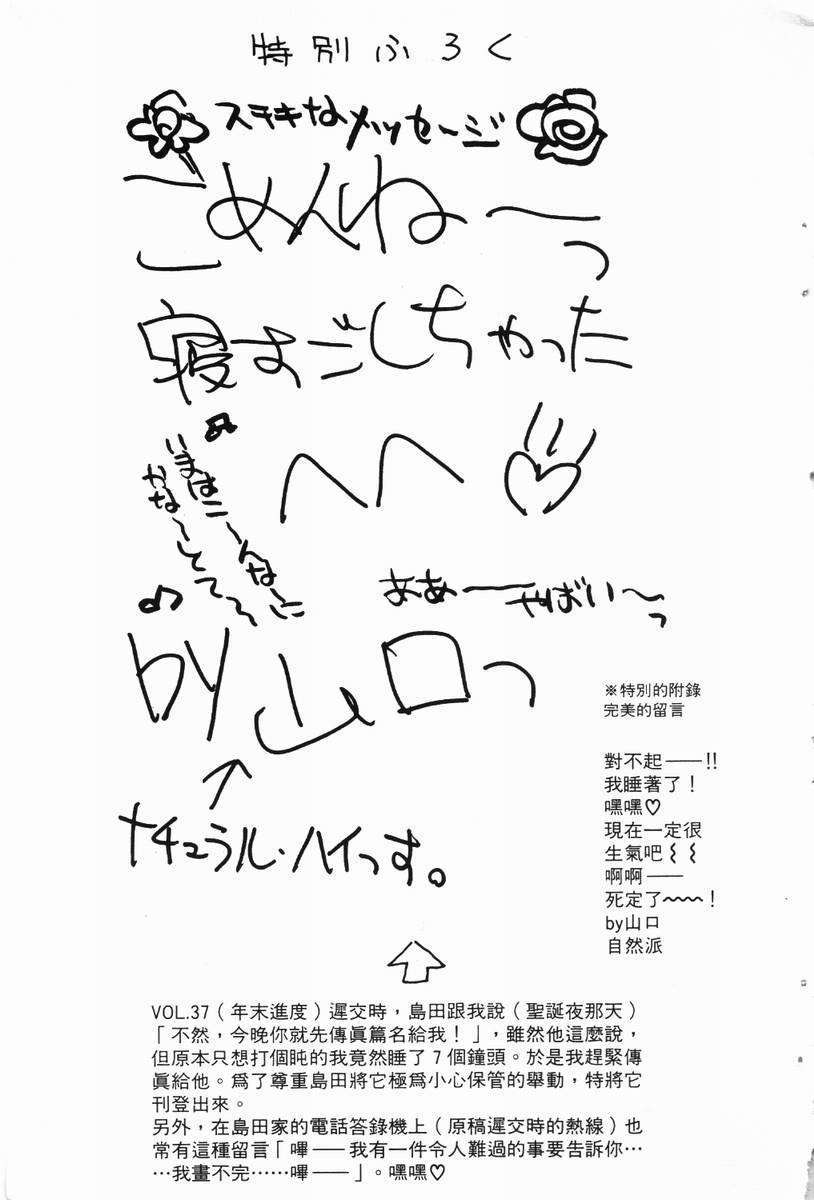 特別ふろく
ステキなメッセージ
ごめんね〜っ
寝すごしちゃった
へへ♡
♪いまはこ〜んなに
かな〜しくて〜♪
ああーやばい〜っ
by山口っ
ナチュラル・ハイっす。
※特別的附錄
完美的留言
對不起——!!
我睡著了！
嘿嘿♡
現在一定很
生氣吧⌇⌇
啊啊——
死定了〜〜！
by山口
自然派
VOL.37（年末進度）遲交時，島田跟我說（聖誕夜那天）
「不然，今晚你就先傳眞篇名給我！」，雖然他這麼說，
但原本只想打個盹的我竟然睡了7個鐘頭。於是我趕緊傳
眞給他。爲了尊重島田將它極爲小心保管的舉動，特將它
刊登出來。
另外，在島田家的電話答錄機上（原稿遲交時的熱線）也
常有這種留言「嗶——我有一件令人難過的事要告訴你…
…我畫不完……嗶——」。嘿嘿♡